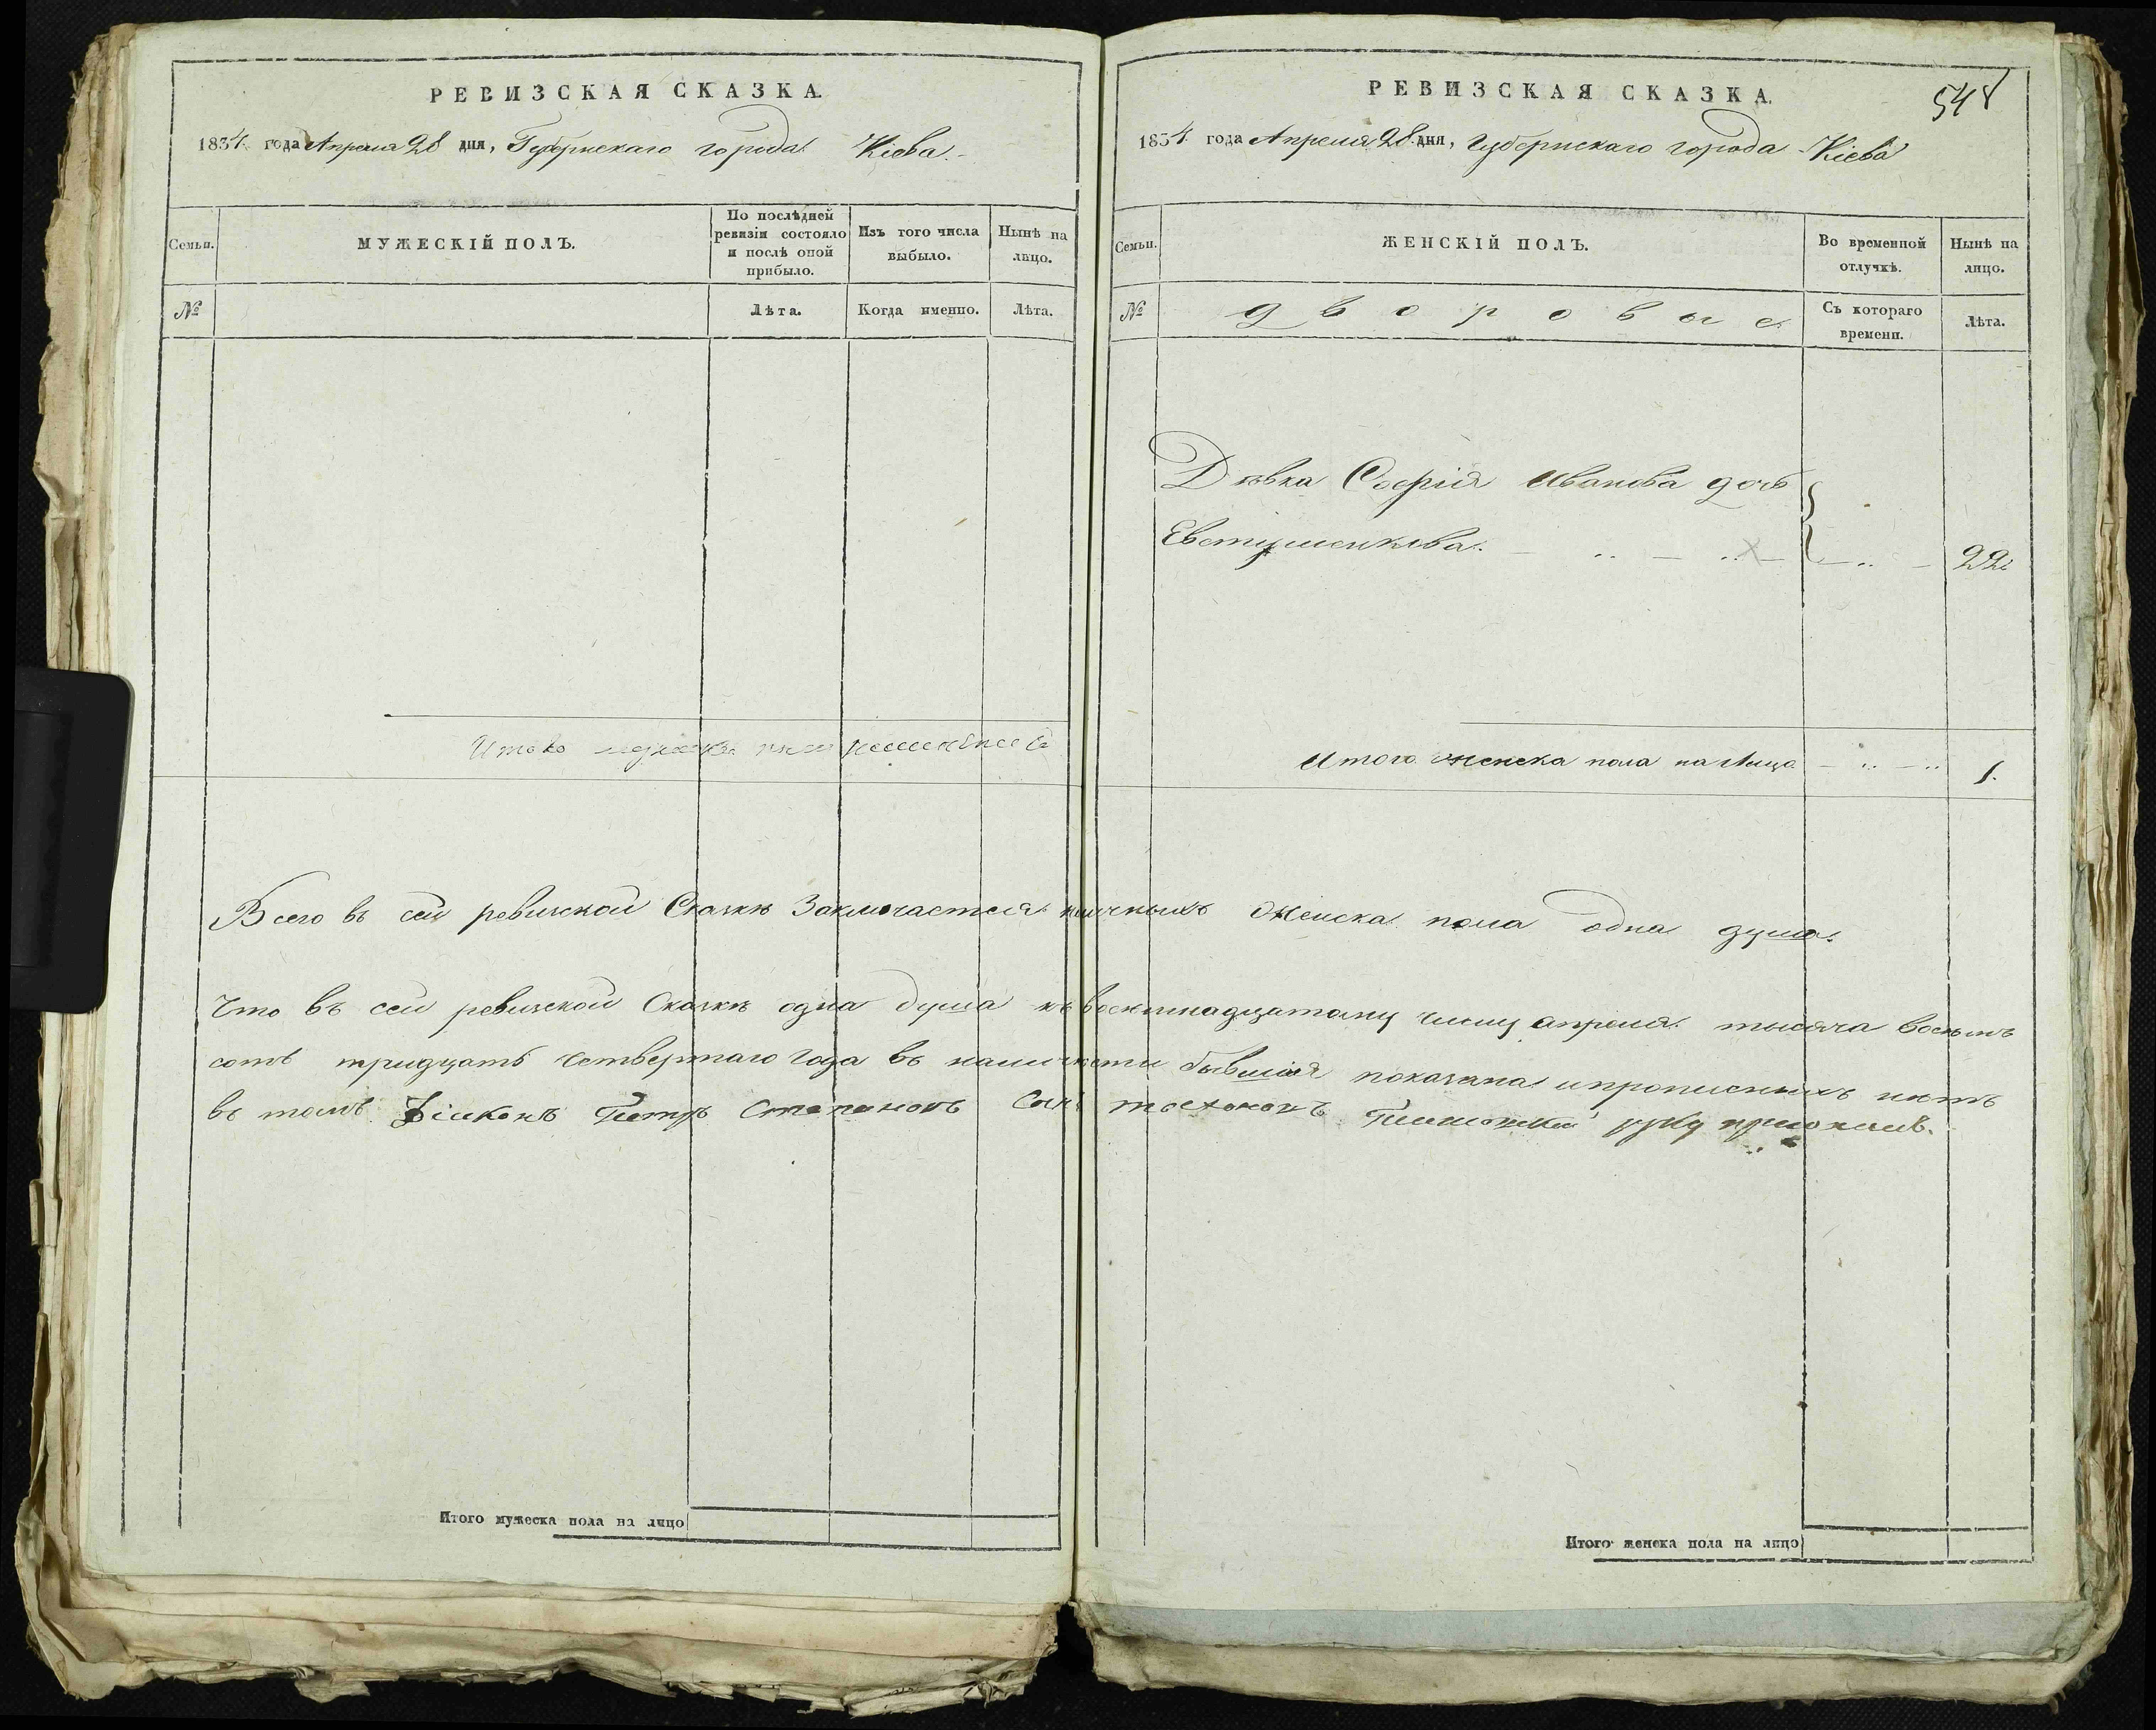 РЕВИЗСКАЯ СКАЗКА.
1834 года Апреля 28 дня, Губернскаго города Кіева.
Семьи.
МУЖЕСКІЙ ПОЛЪ.
По послѣдней ревизіи состояло и послѣ оной прибыло.
Изъ того числа выбыло.
Нынѣ на лицо.
№
Лѣта.
Когда именно.
Лѣта.
Итого
Итого мужеска пола на лицо
548
РЕВИЗСКАЯ СКАЗКА.
1834 года Апреля 28 дня, Губернскаго города Кіева
Семьи.
ЖЕНСКІЙ ПОЛЪ.
Во временной отлучкѣ.
Нынѣ на лицо.
№
дворовые
Съ котораго времени.
Лѣта.
Дѣвка Софія Иванова дочь
Евтушенкова. 22
Итого женска пола на лицо 1.
Всего въ сей ревизской Сказкѣ Заключается наличныхъ женска пола одна душа.
Что въ сей ревизской Сказкѣ одна душа къ восемнадцатому числу апреля тысяча восемъ
сотъ тридцать четвертаго года въ наличности бывшая показана и прописныхъ нѣтъ
въ томъ Діяконъ Петръ Степановъ Сынъ руку приложилъ.
Итого женска пола на лицо